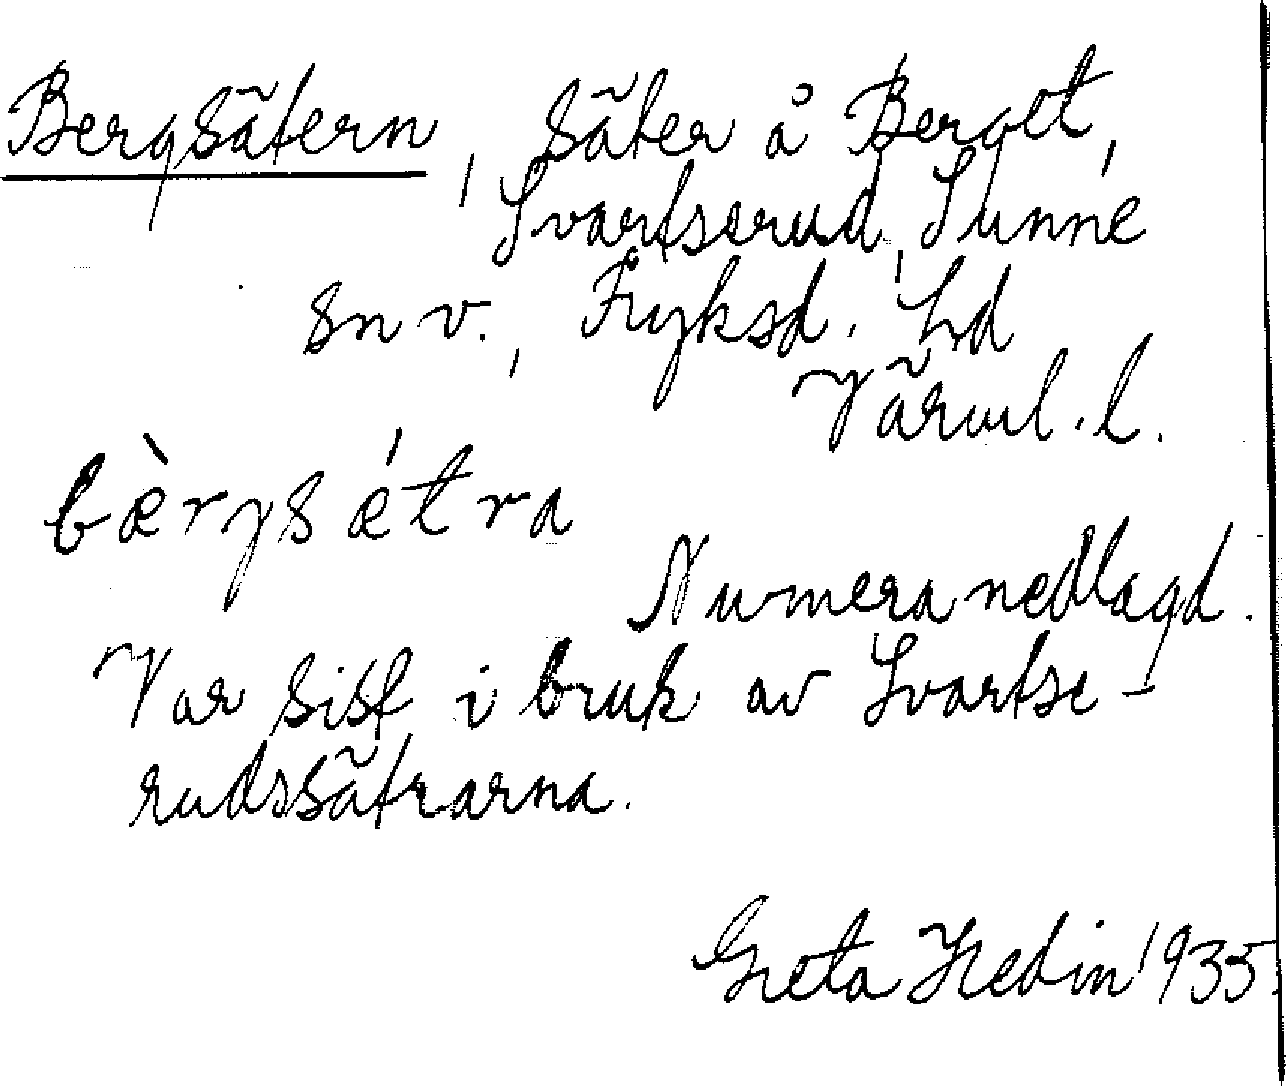 Bergsätern, säter å Berget,
Svartserud, Sunne
sn v., Fryksd. hd
Värml. l.
bærgsætra
Numera nedlagd.
Var sist i bruk av Svartse-
rudssätrarna.
Greta Hedin 1935.